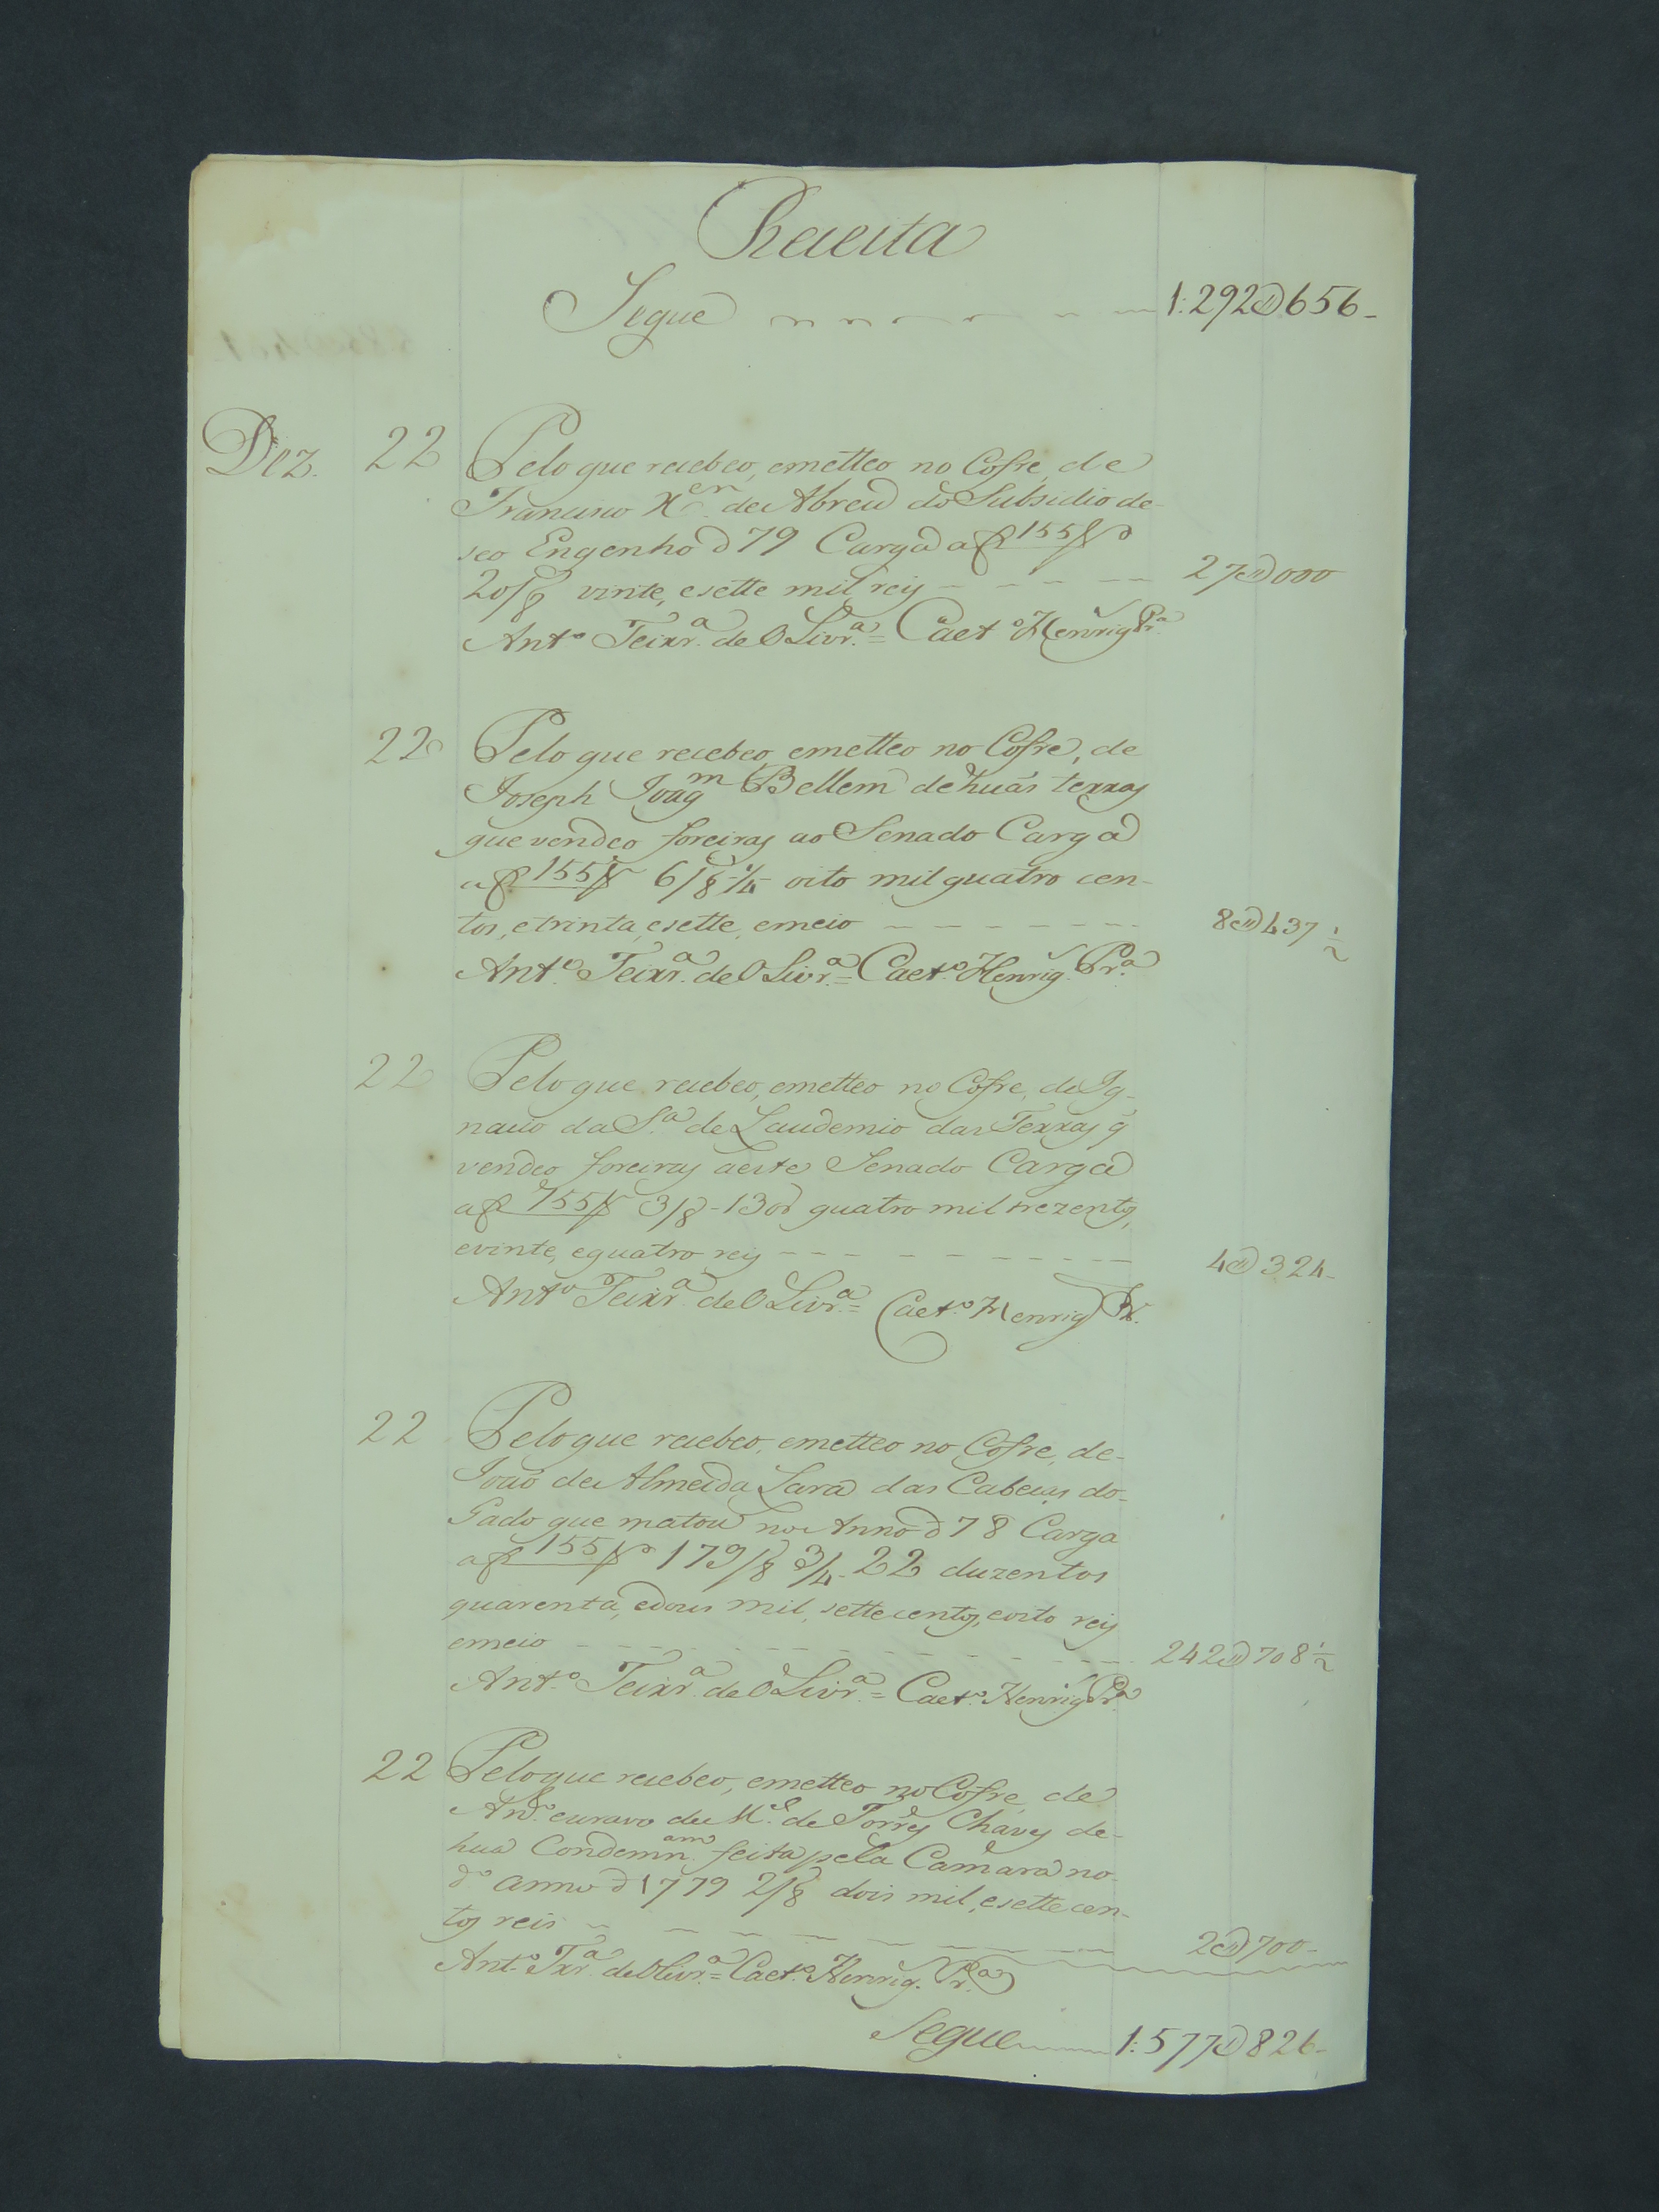 Receita
Segue 1:292@656
Dez. 22 Pelo que recebeo, emetteo no Cofre, de
Francisco X.er de Abreu do Subsidio de
seo Engenho d 79 Carga a f 155
20/8 vinte, esette mil reis 27@000
Ant.o Teixr.a de OLivr.a = Caet.o Henriq Pr.a
22 Pelo que recebeo, emetteo no Cofre, de
Joseph Joaq.m Bellem de huãs terras
que vendeo foreiras ao Senado Carga
a f 155 6/8 1/4 oito mil quatro cen-
tos, etrinta, esette, emeio 8@437 1/2
Ant.o Teixr.a de OLivr.a = Caet.o Henriq. Pr.a
22 Pelo que recebeo, emetteo no Cofre, de Ig-
nacio da S.a de Laudemio das Terras q̃
vendeo foreiras aeste Senado Carga
a f 155 3/8 - 13 quatro mil trezentos,
evinte, equatro reis 4@324
Ant.o Teixr.a de OLivr.a = Caet.o Henriq Pr.
22 Pelo que recebeo, emetteo no Cofre, de
Joaõ de Almeida Lara das Cabeças do
Gado que matou no Anno d 78 Carga
a f 155 179/8 3/4 - 22 duzentos
quarenta, edous mil, settecentos, eoito reis
emeio 242@708 1/2
Ant.o Teixr.a de OLivr.a = Caet.o Henriq Pr.a
22 Pelo que recebeo, emetteo no Cofre, de
And.e de M.el de Torres Chaves de
hua Condemn.am feita pela Camara no
d.o anno d 1779 2/8 dois mil, esettecen-
tos reis 2@700
Ant.o Txr.a de Olivr.a = Caet.o Henriq. Pr.a
Segue 1:577@826